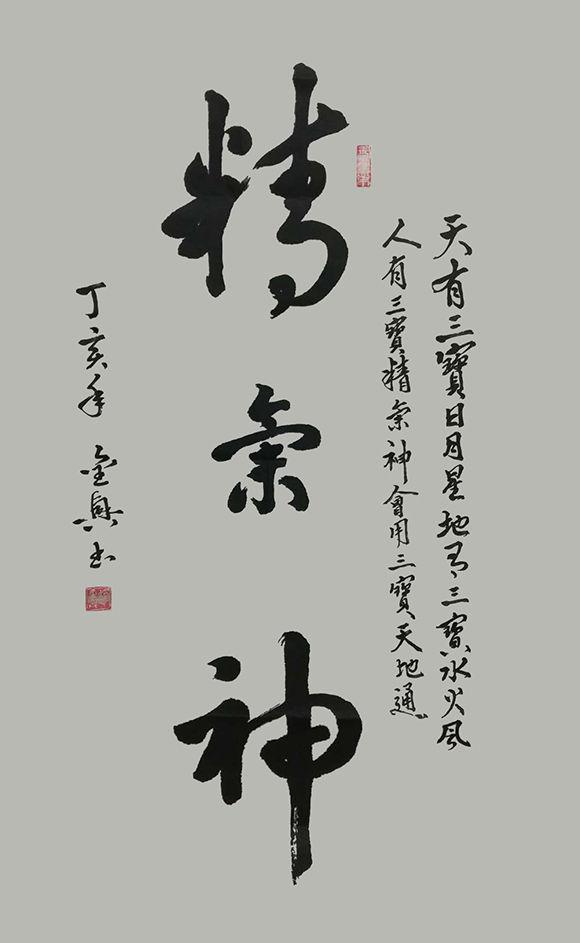 天有三寶日月星地有三寶水火風
人有三寶精氣神會用三寶天地通
精氣神
丁亥年 金 书